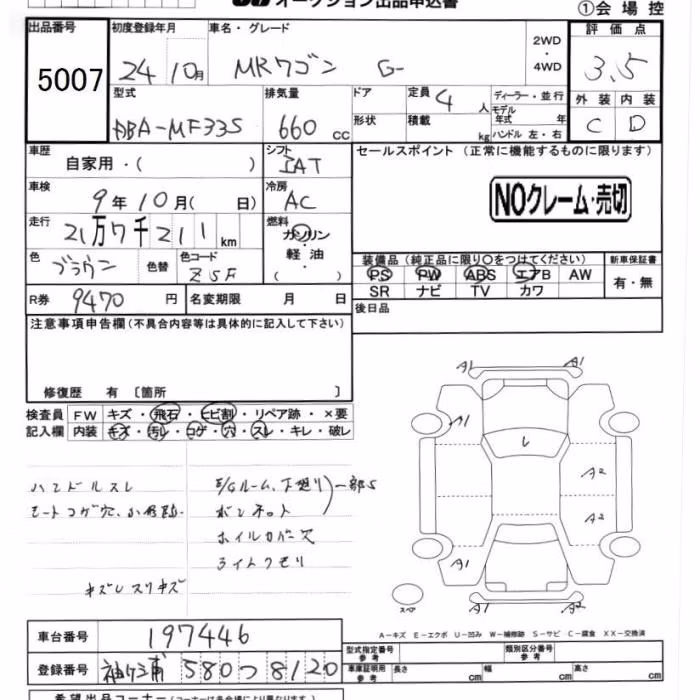 オークション出品申込書
①会場控
出品番号 5007
初度登録年月 24 10月
車名・グレード MRワゴン G-
2WD・4WD
評価点 3.5
型式 DBA-MF33S
排気量 660 cc
ドア 形状
定員 4 人
積載 kg
ディーラー・並行
モデル年式 年
ハンドル 左・右
外装 内装
C D
車歴 自家用・( )
シフト IAT
セールスポイント (正常に機能するものに限ります)
車検 9年10月( 日)
冷房 AC
NOクレーム・売切
走行 21万7千211km
燃料 ガソリン・軽油・( )
色 ブラウン 色替 色コード ZSF
装備品 (純正品に限り○をつけてください)
新車保証書
PS PW ABS エアB AW
有・無
SR ナビ TV カワ
R券 9470 円 名変期限 月 日
後日品
注意事項申告欄(不具合内容等は具体的に記入して下さい)
修復歴 有 〔箇所 〕
検査員 FW キズ・飛石・ヒビ割・リペア跡・×要
記入欄 内装 キズ・汚レ・コゲ・穴・スレ・キレ・破レ
ハンドルスレ
シートコゲ穴、
キズレスリキズ
E/Gルーム、下廻り 一部S
ボンネット
ホイルカバー欠
ライトクモリ
A1 A1
A1
A2
A2
A1 A1
A1 A2
スペア
A-キズ E-エクボ U-凹み W-補修跡 S-サビ C-腐食 XX-交換済
車台番号 197446
型式指定番号 参考 類別区分番号 参考
登録番号 袖ケ浦 580 つ 8120
車庫証明用 参考 長さ cm 幅 cm 高さ cm
希望出品コーナー(コーナーは各会場により異なります)